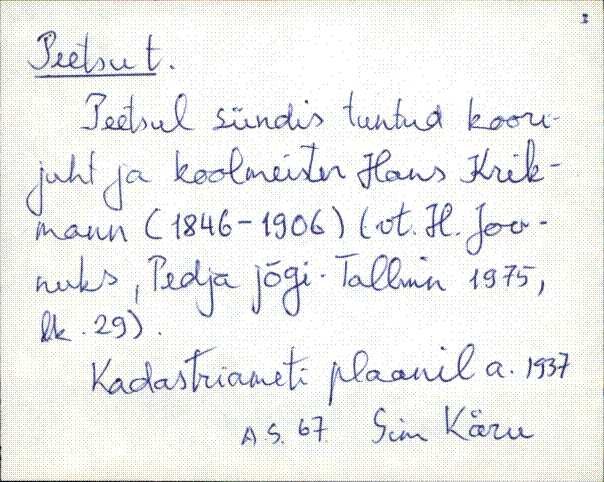 Peetsu t.
Peetsul sündis tuntud koori-
juht ja koolmeister Hans Krik-
mann (1846-1906) (vt. H. Joo-
nuks, Pedja jõgi. Tallinn 1975,
lk. 29).
Kadastriameti plaanil a. 1937
A.S. 67. Siin Käru